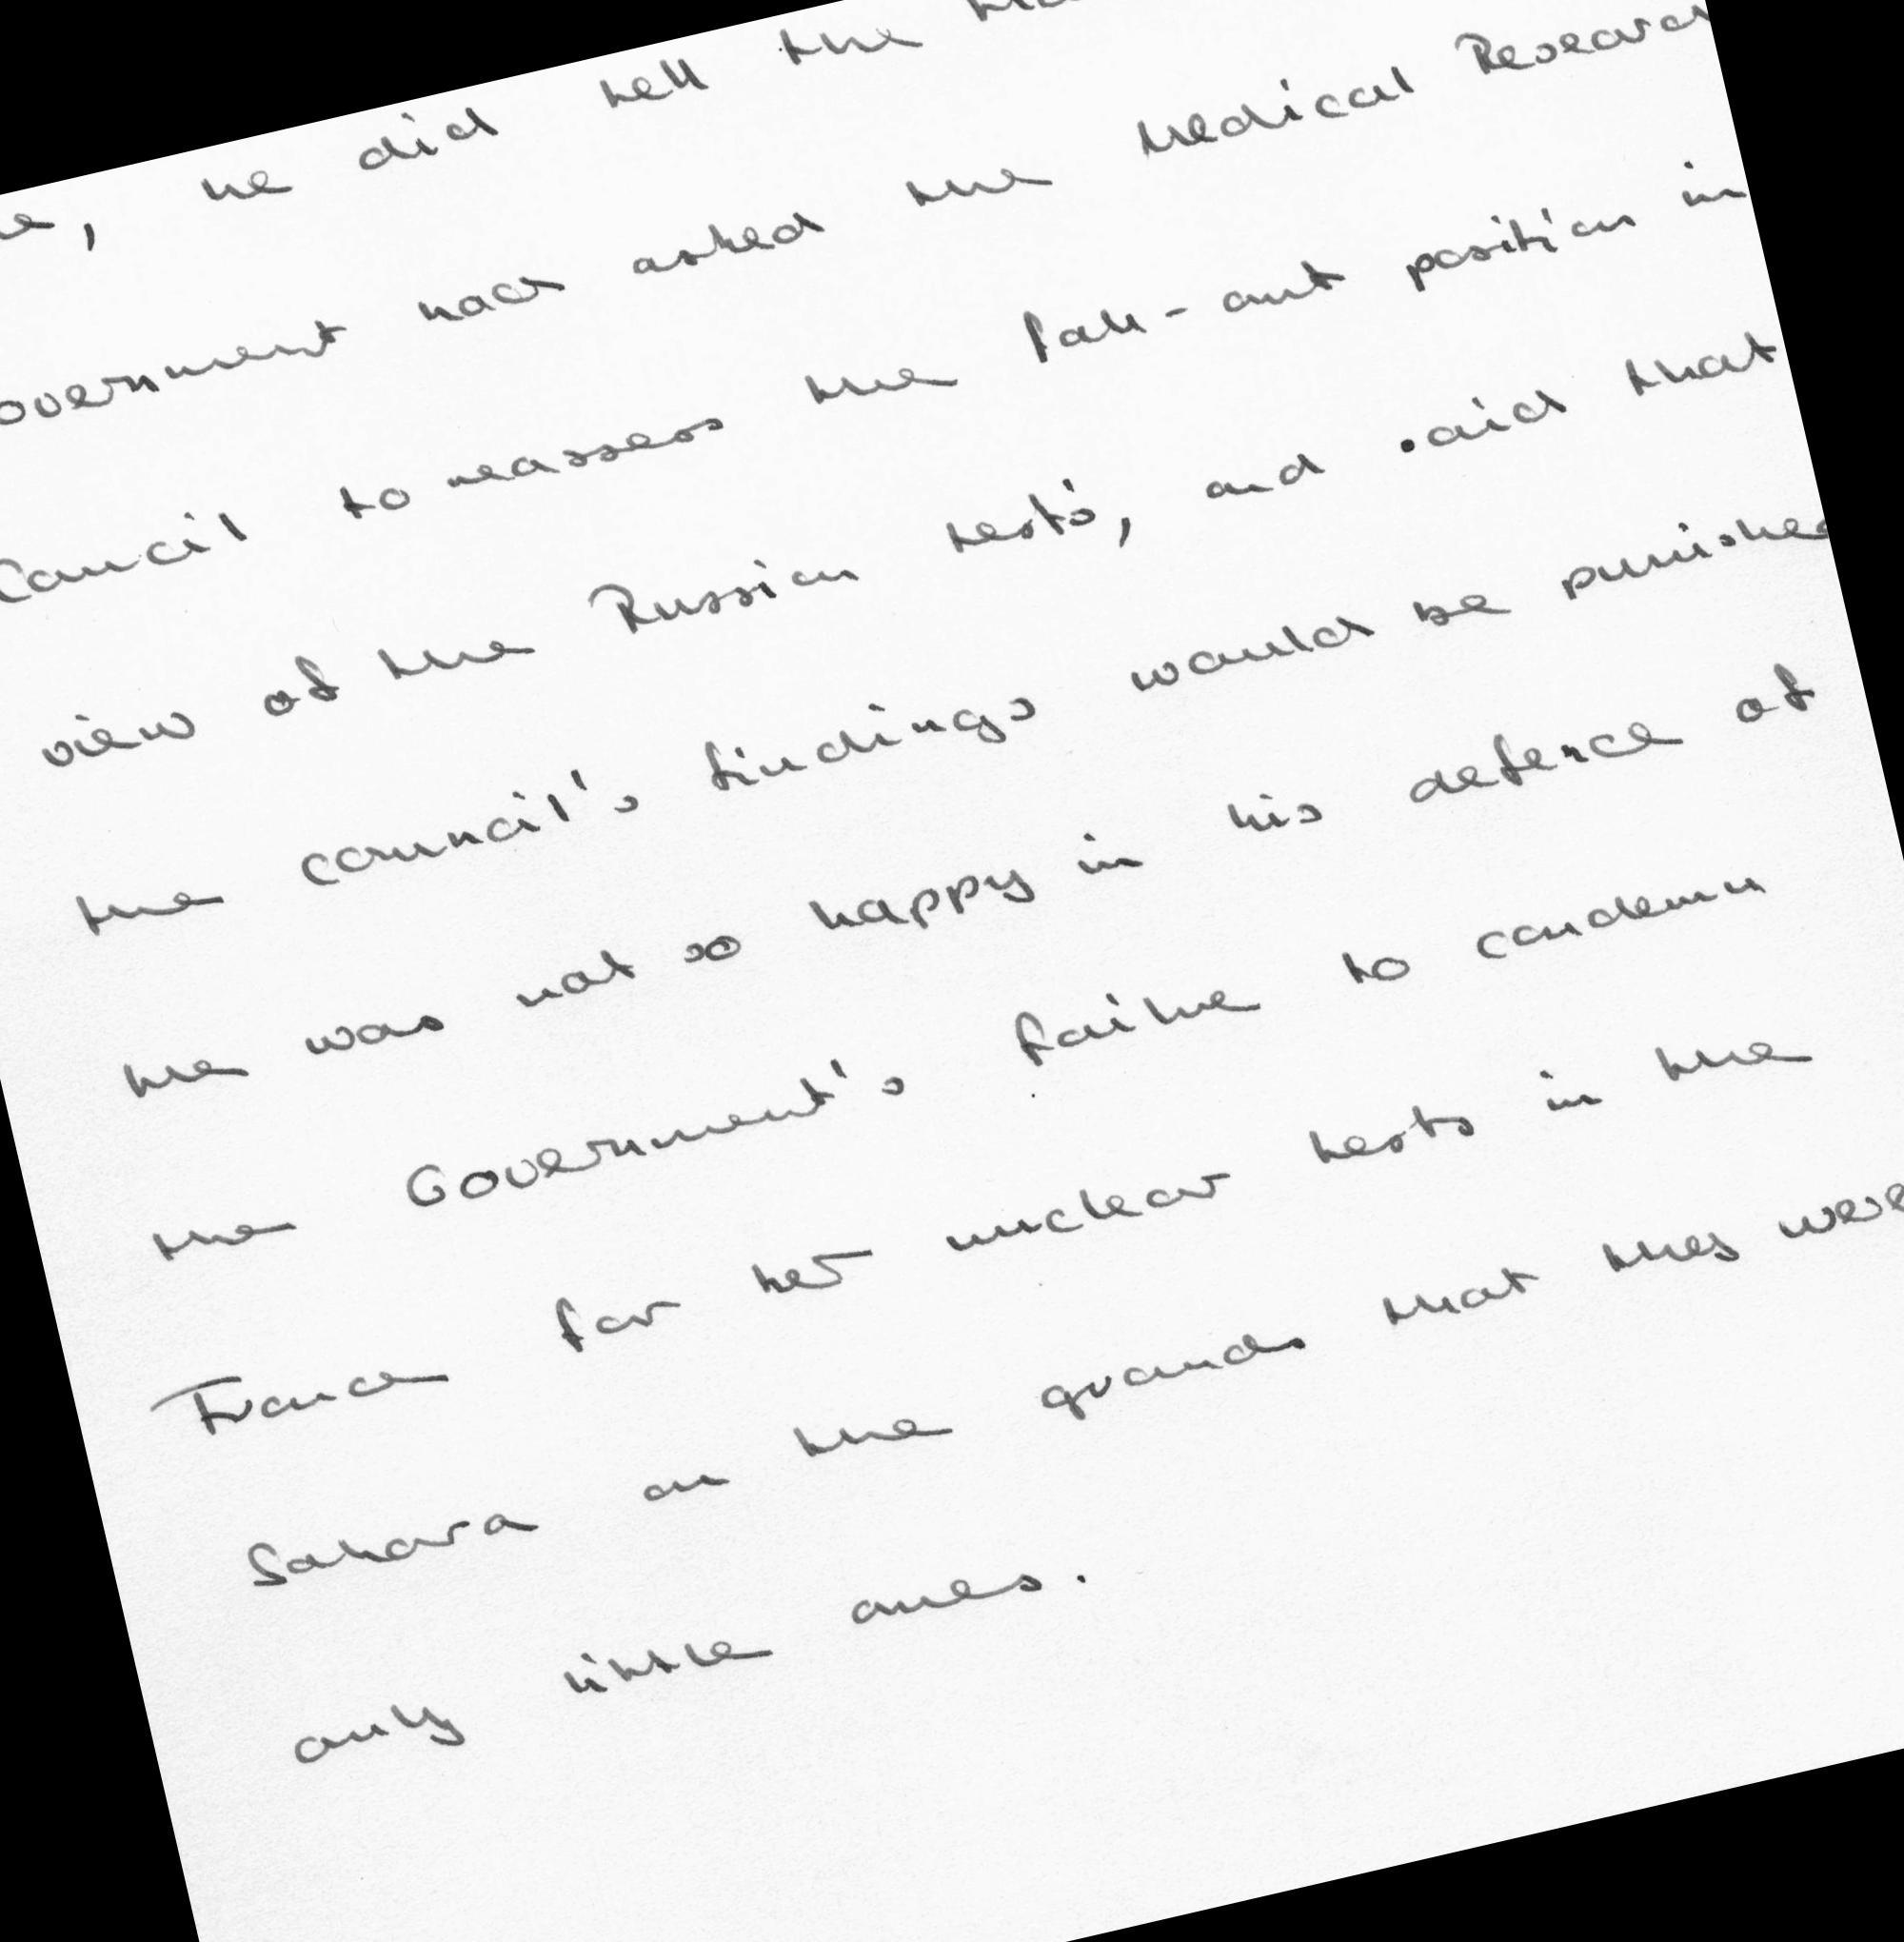 , he did tell the
Government had asked the Medical Research
Council to reassess the fall-out position in
view of the Russian tests, and said that
the council's findings would be punished
he was not so happy in his defence of
the Government's failure to condemn
France for her nuclear tests in the
Sahara on the grounds that they were
only little ones.